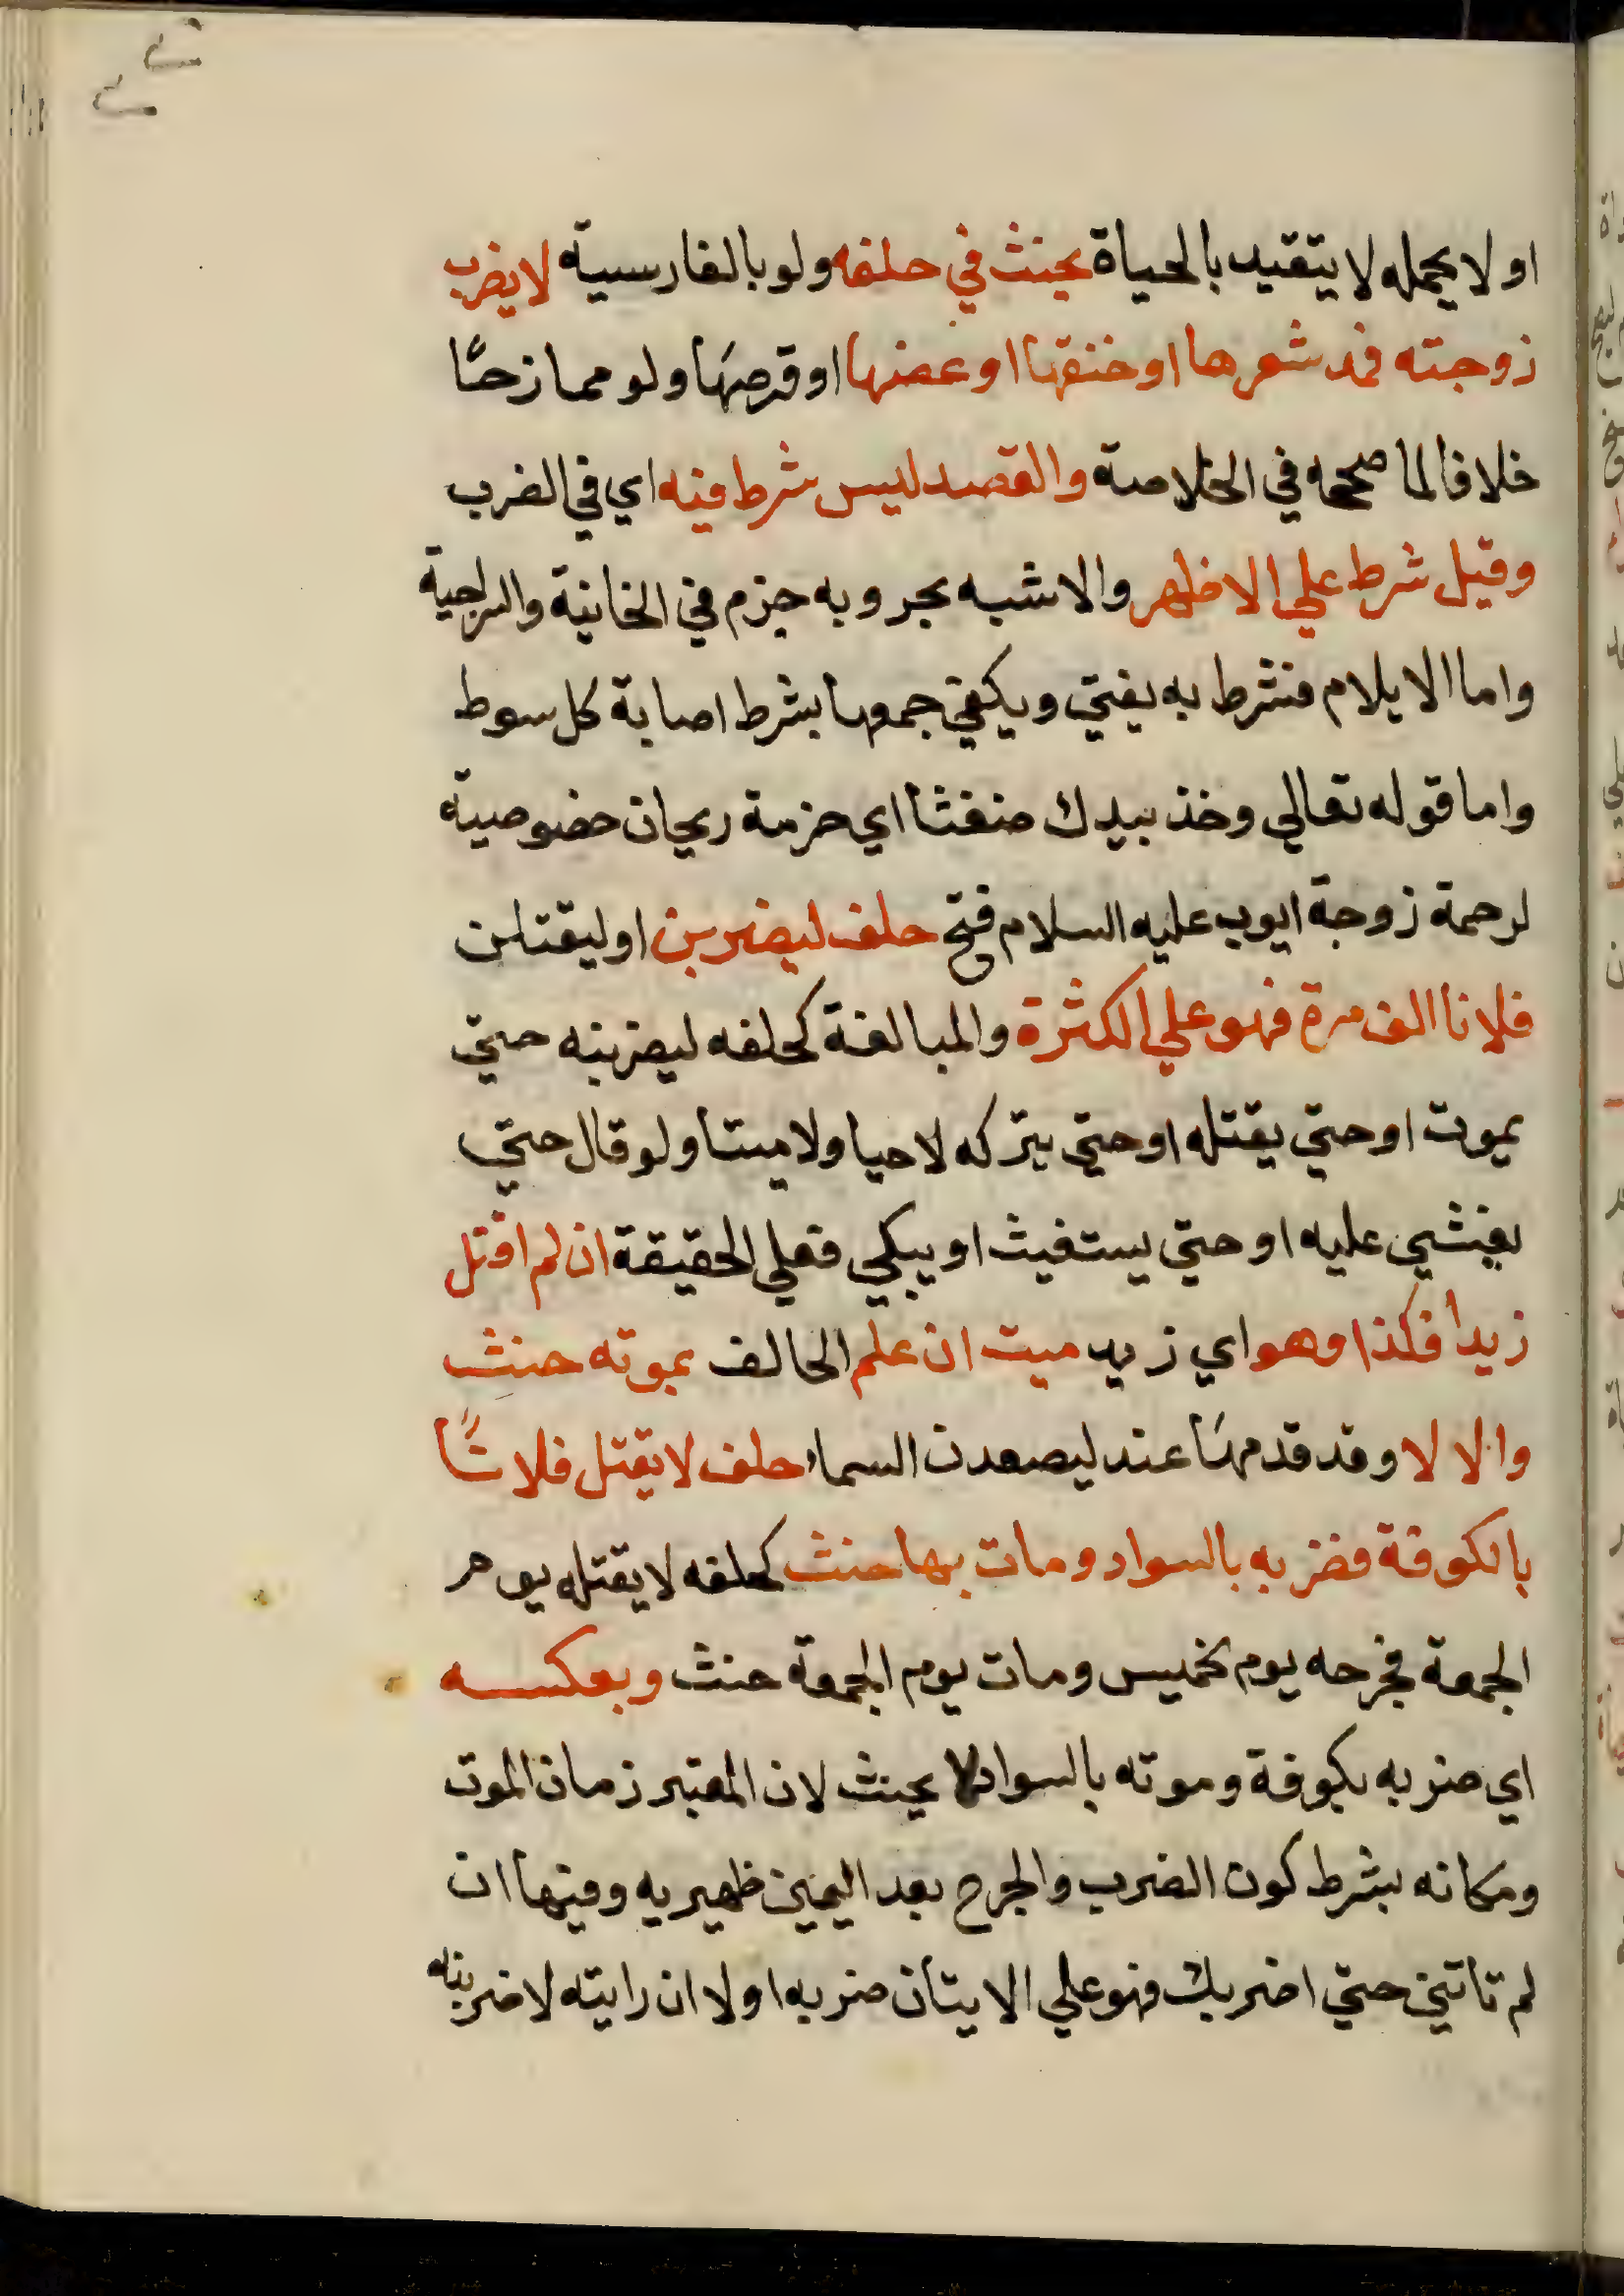 او لا يحمله لا يتقيد بالحياة يحنث في حلفه ولو بالفارسية لا يضرب
زوجته فمد شعرها او خنقها او عضها او قرصها ولو ممازحًا
خلافا لما صححه في الخلاصة والقصد ليس شرط فيه اي في الضرب
وقيل شرط علي الاظهر والاشبه بحر وبه جزم في الخانية والسراجية
واما الايلام فشرط به يفتي ويكفي جمعها بشرط اصابة كل سوط
واما قوله تعالي وخذ بيدك ضغثا اي حزمة ريحان خصوصية
لرحمة زوجة ايوب عليه السلام فتح حلف ليضربن او ليقتلن
فلانا الف مرة فهو علي الكثرة والمبالغة كحلفه ليضربنه حتي
يموت او حتي يقتله او حتي يتركه لا حيا ولا ميتا ولو قال حتي
يغشي عليه او حتي يستغيث او يبكي فعلي الحقيقة ان لم اقتل
زيدا فكذا وهو اي زيد ميت ان علم الحالف بموته حنث
والا لا وقد قدمها عند ليصعدن السماء حلف لا يقتل فلانًا
بالكوفة فضربه بالسواد ومات بها حنث كحلفه لا يقتله يوم
الجمعة فجرحه يوم خميس ومات يوم الجمعة حنث وبعكسه
اي ضربه بكوفة وموته بالسواد لا يحنث لان المعتبر زمان الموت
ومكانه بشرط كون الضرب والجرح بعد اليمين ظهيريه وفيها ان
لم تاتني حتي اضربك فهو علي الاتيان ضربه او لا ان رايته لاضربنه